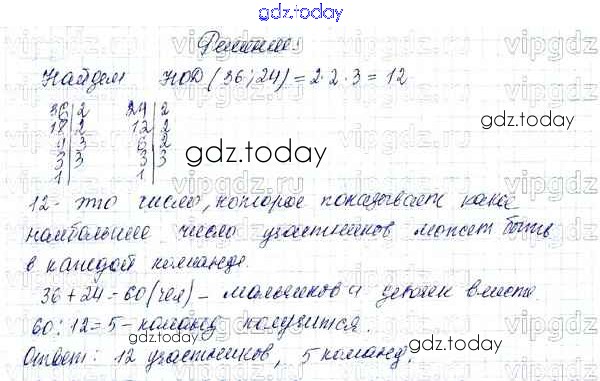 gdz.today
Решение:
Найдем НОД (36; 24) = 2·2·3 = 12
36|2 24|2
18|2 12|2
9|3 6|2
3|3 3|3
1| 1|
gdz.today
gdz.today
12 - это число, которое показывает какое
наибольшее число участников может быть
в каждой команде.
36 + 24 = 60 (чел) - мальчиков и девочек вместе.
60 : 12 = 5 - команд получится.
Ответ: 12 участников, 5 команд.
gdz.today